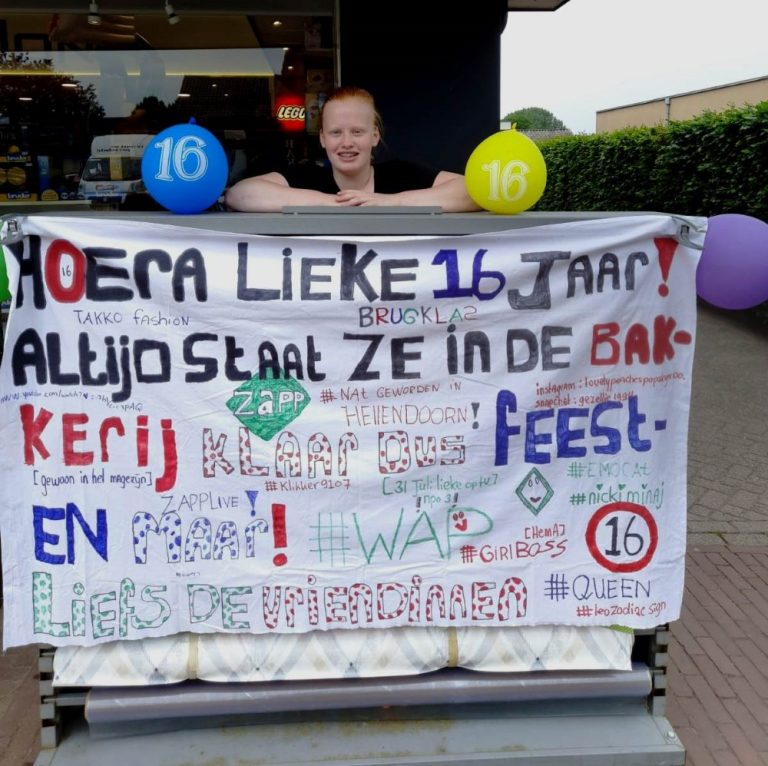 LEGO
bruder
16
16
HOERA LIEKE 16 JAAR!
16
TAKKO fashion
BRUGKLAS
ALtIJD StAAt ZE in DE BAK-
KERij KLAAR DUS fEESt-
ZAPP
#NAT GEWORDEN IN
HELLENDOORN!
[gewoon in het magezijn]
#Klikker9107
[31 Juli lieke op tv]
npo 3!
#EMOCAt
#nicki minaj
ZAPPLIVE!
EN MAAR! #WAP
[HEMA]
#GIRlBOSS
16
LiEfS DE VRiENDiNNEN
#QUEEN
#leo zodiac sign